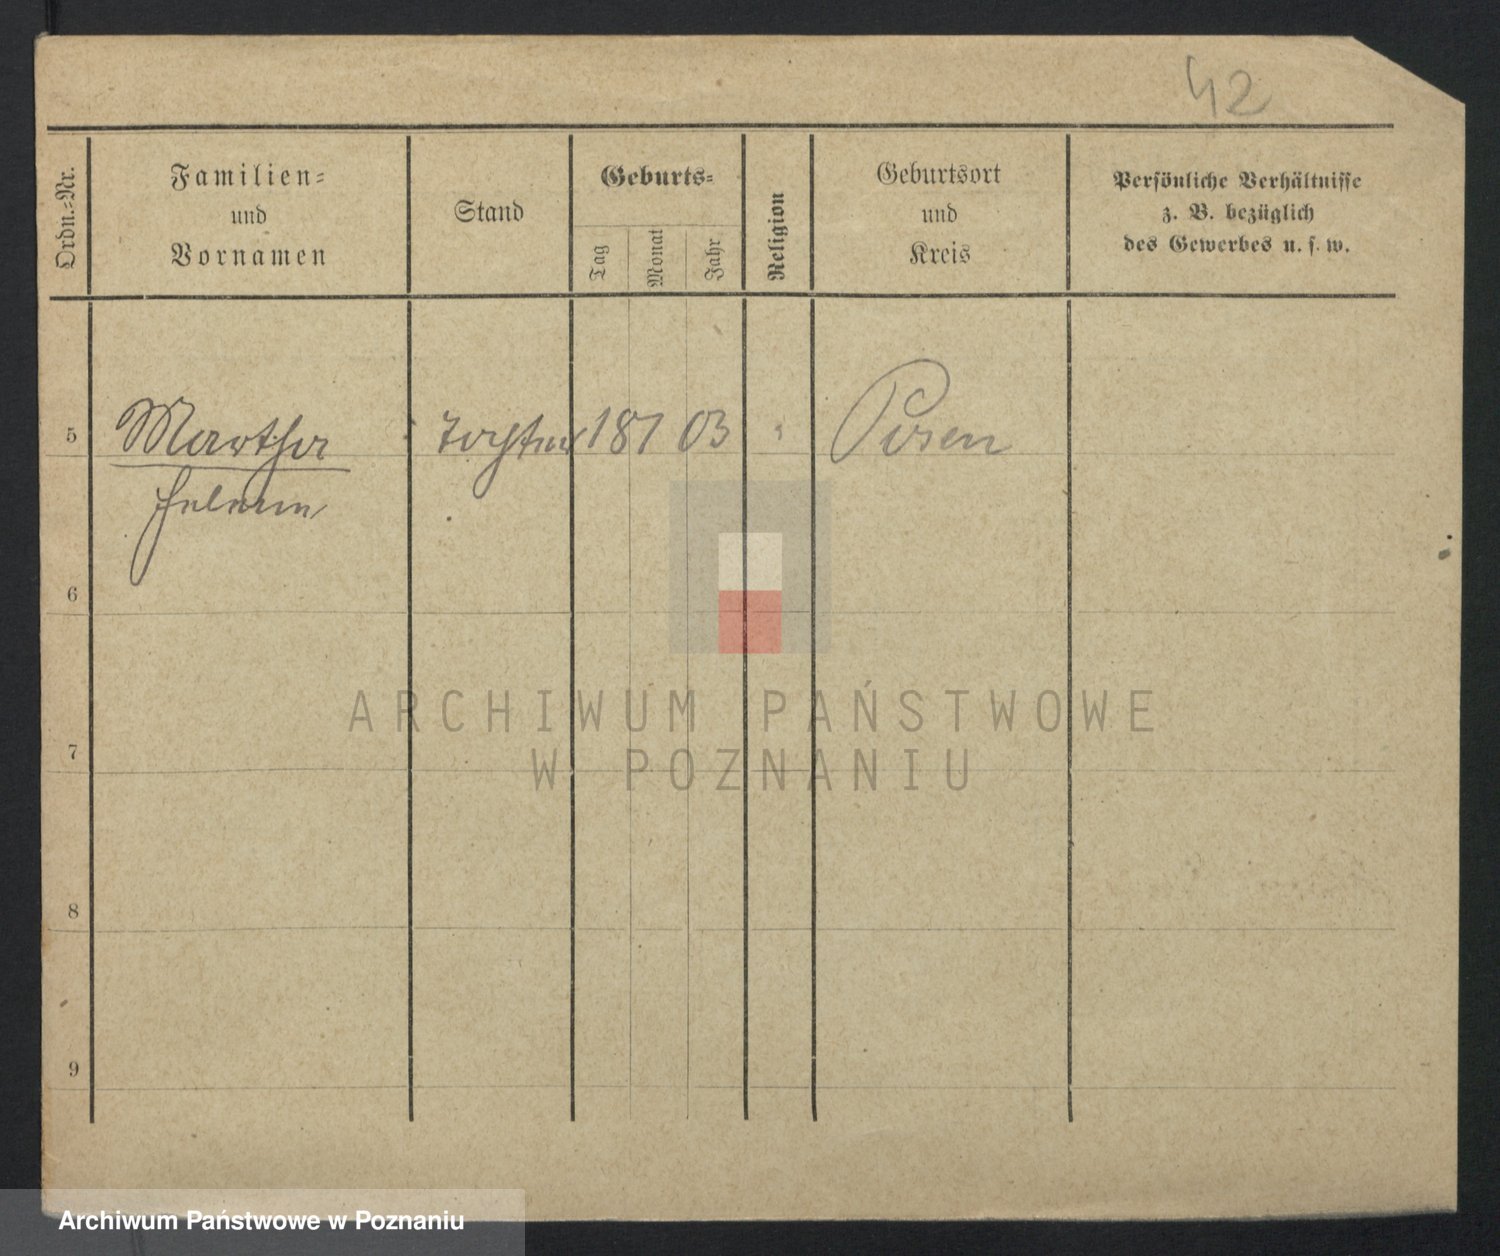 42
Ordn.=Nr.
Familien=
und
Vornamen
Stand
Geburts=
Tag
Monat
Jahr
Religion
Geburtsort
und
Kreis
Persönliche Verhältnisse
z. B. bezüglich
des Gewerbes u. s. w.
5 Martha Tochter 18 7 03 " Posen
Helene
6
7
8
9
ARCHIWUM PAŃSTWOWE
W POZNANIU
Archiwum Państwowe w Poznaniu